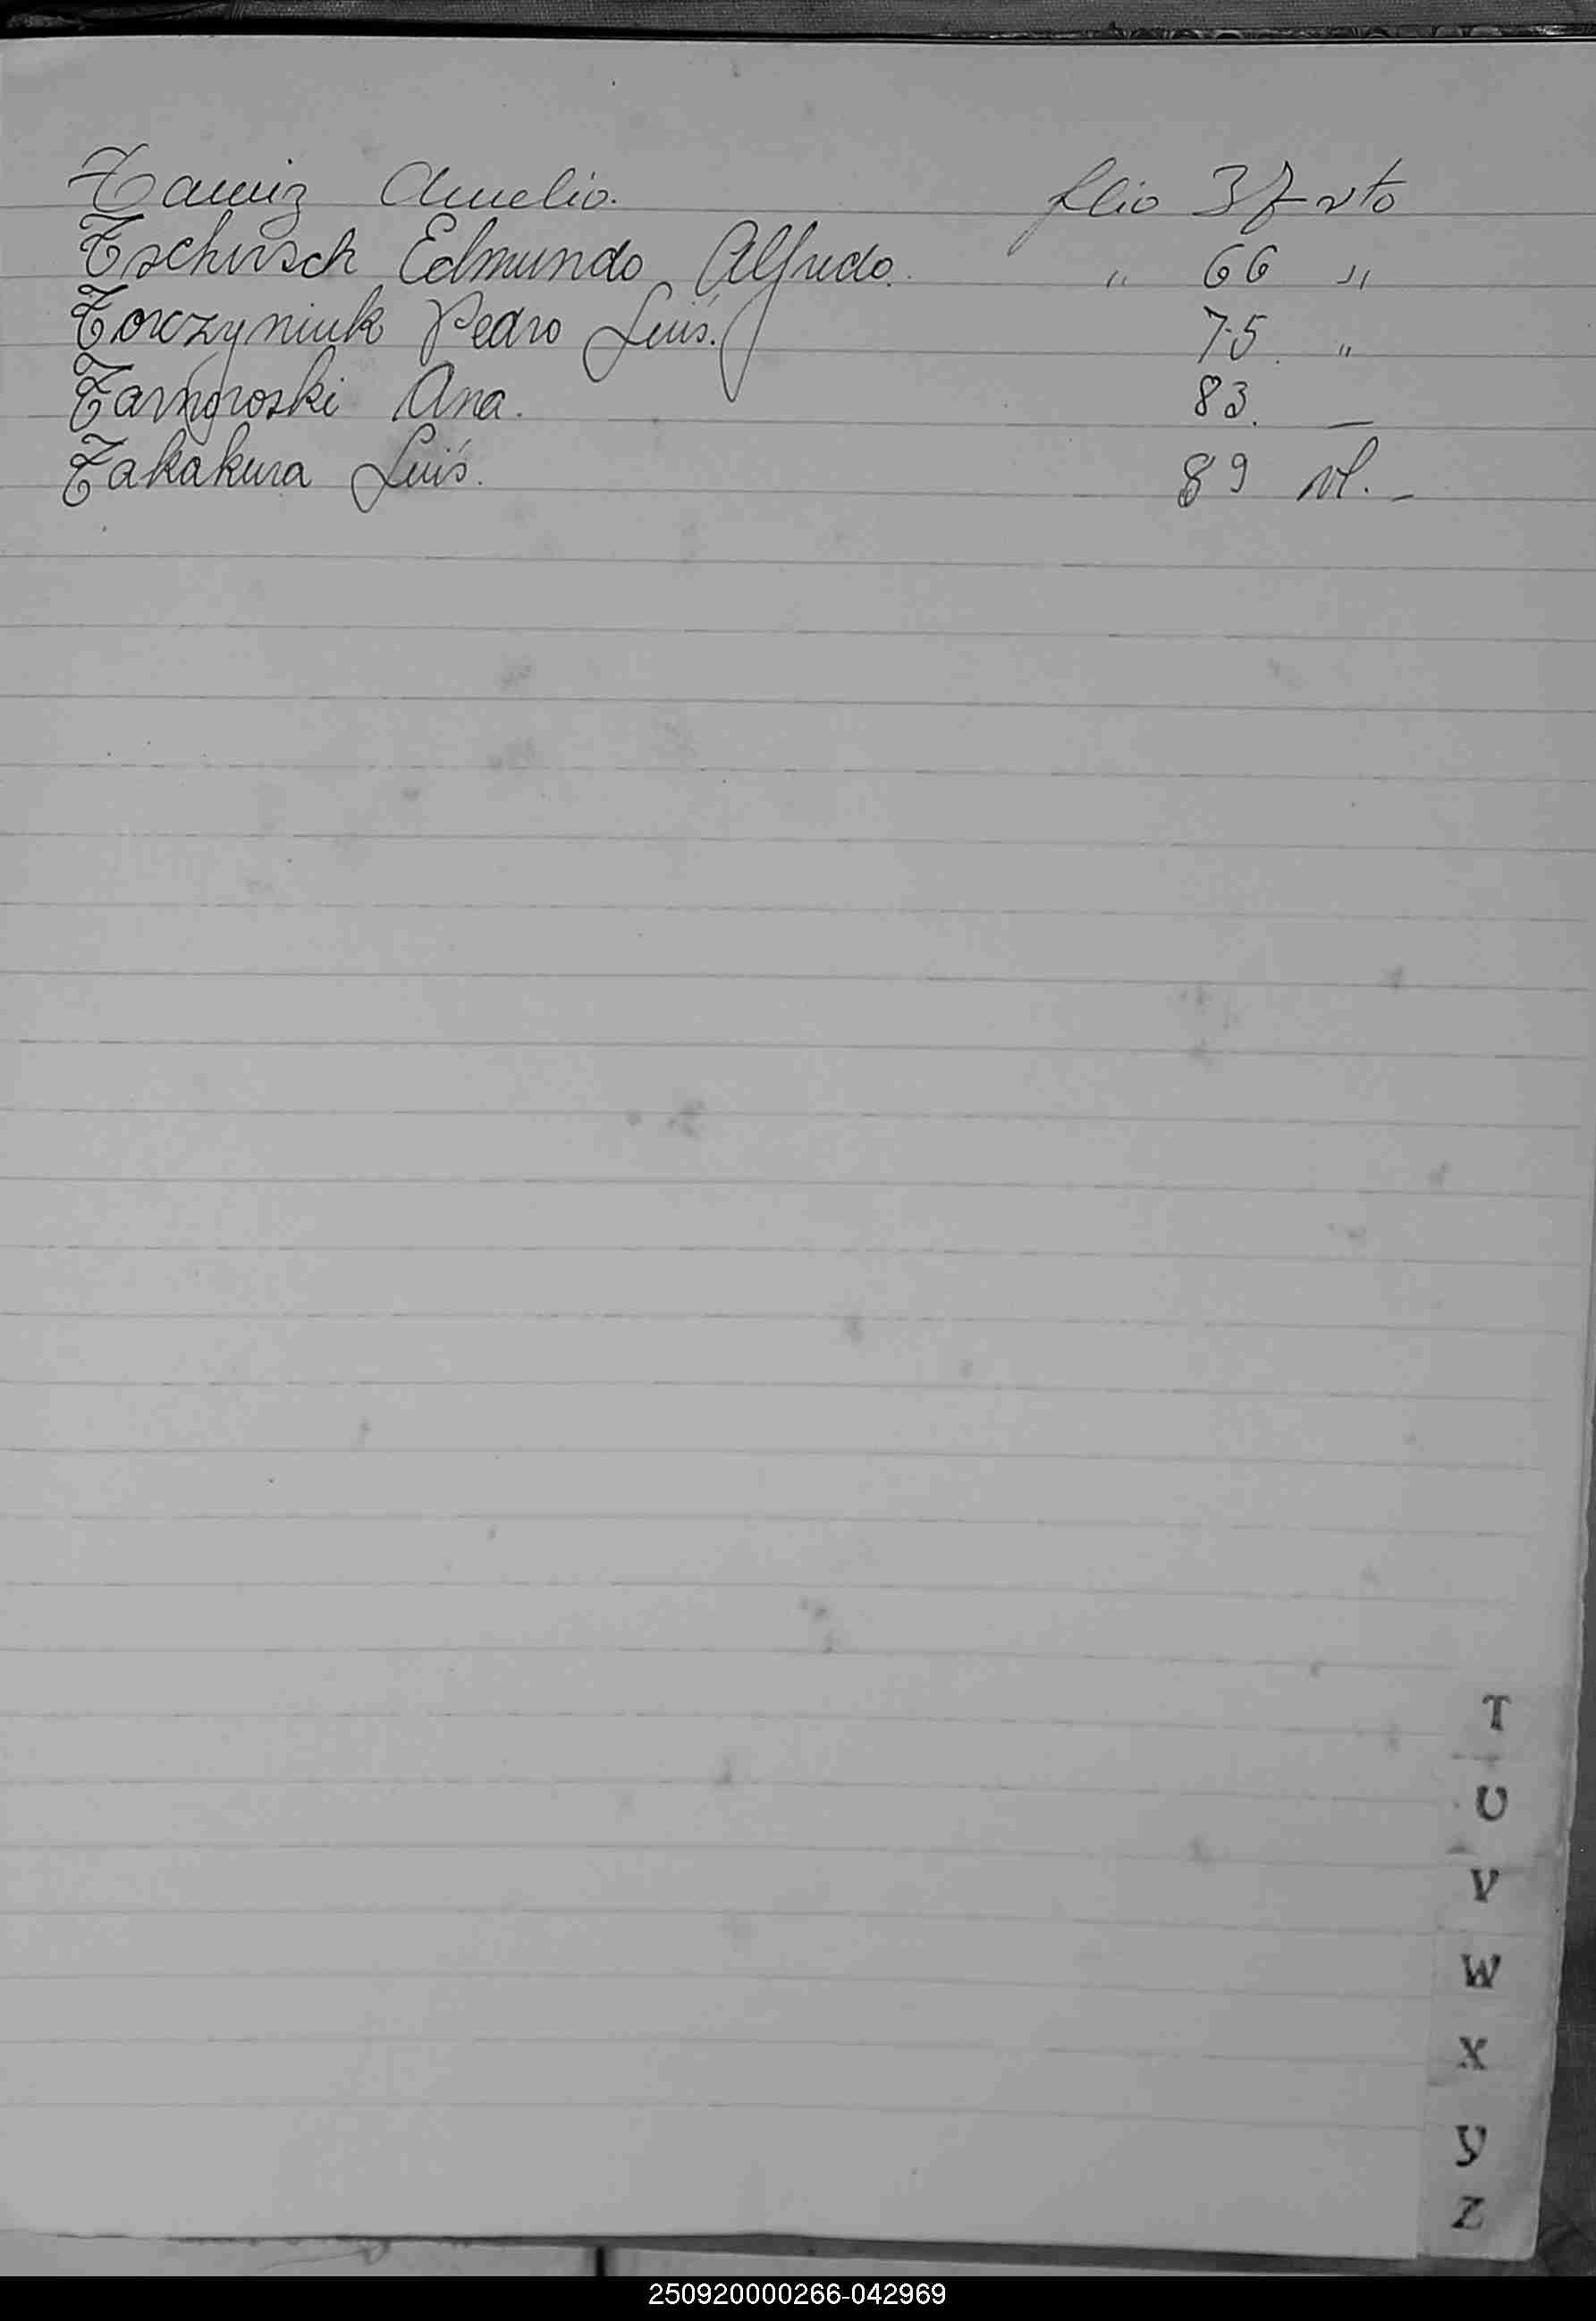 Tamiz Amelio. flio 37 vto
Tschirsch Edmundo Alfredo. " 66 "
Torczyniuk Pedro Luis. 75. "
Tarnoroski Ana. 83. —
Takakura Luís. 89 vt. -
T
U
V
W
X
y
Z
250920000266-042969